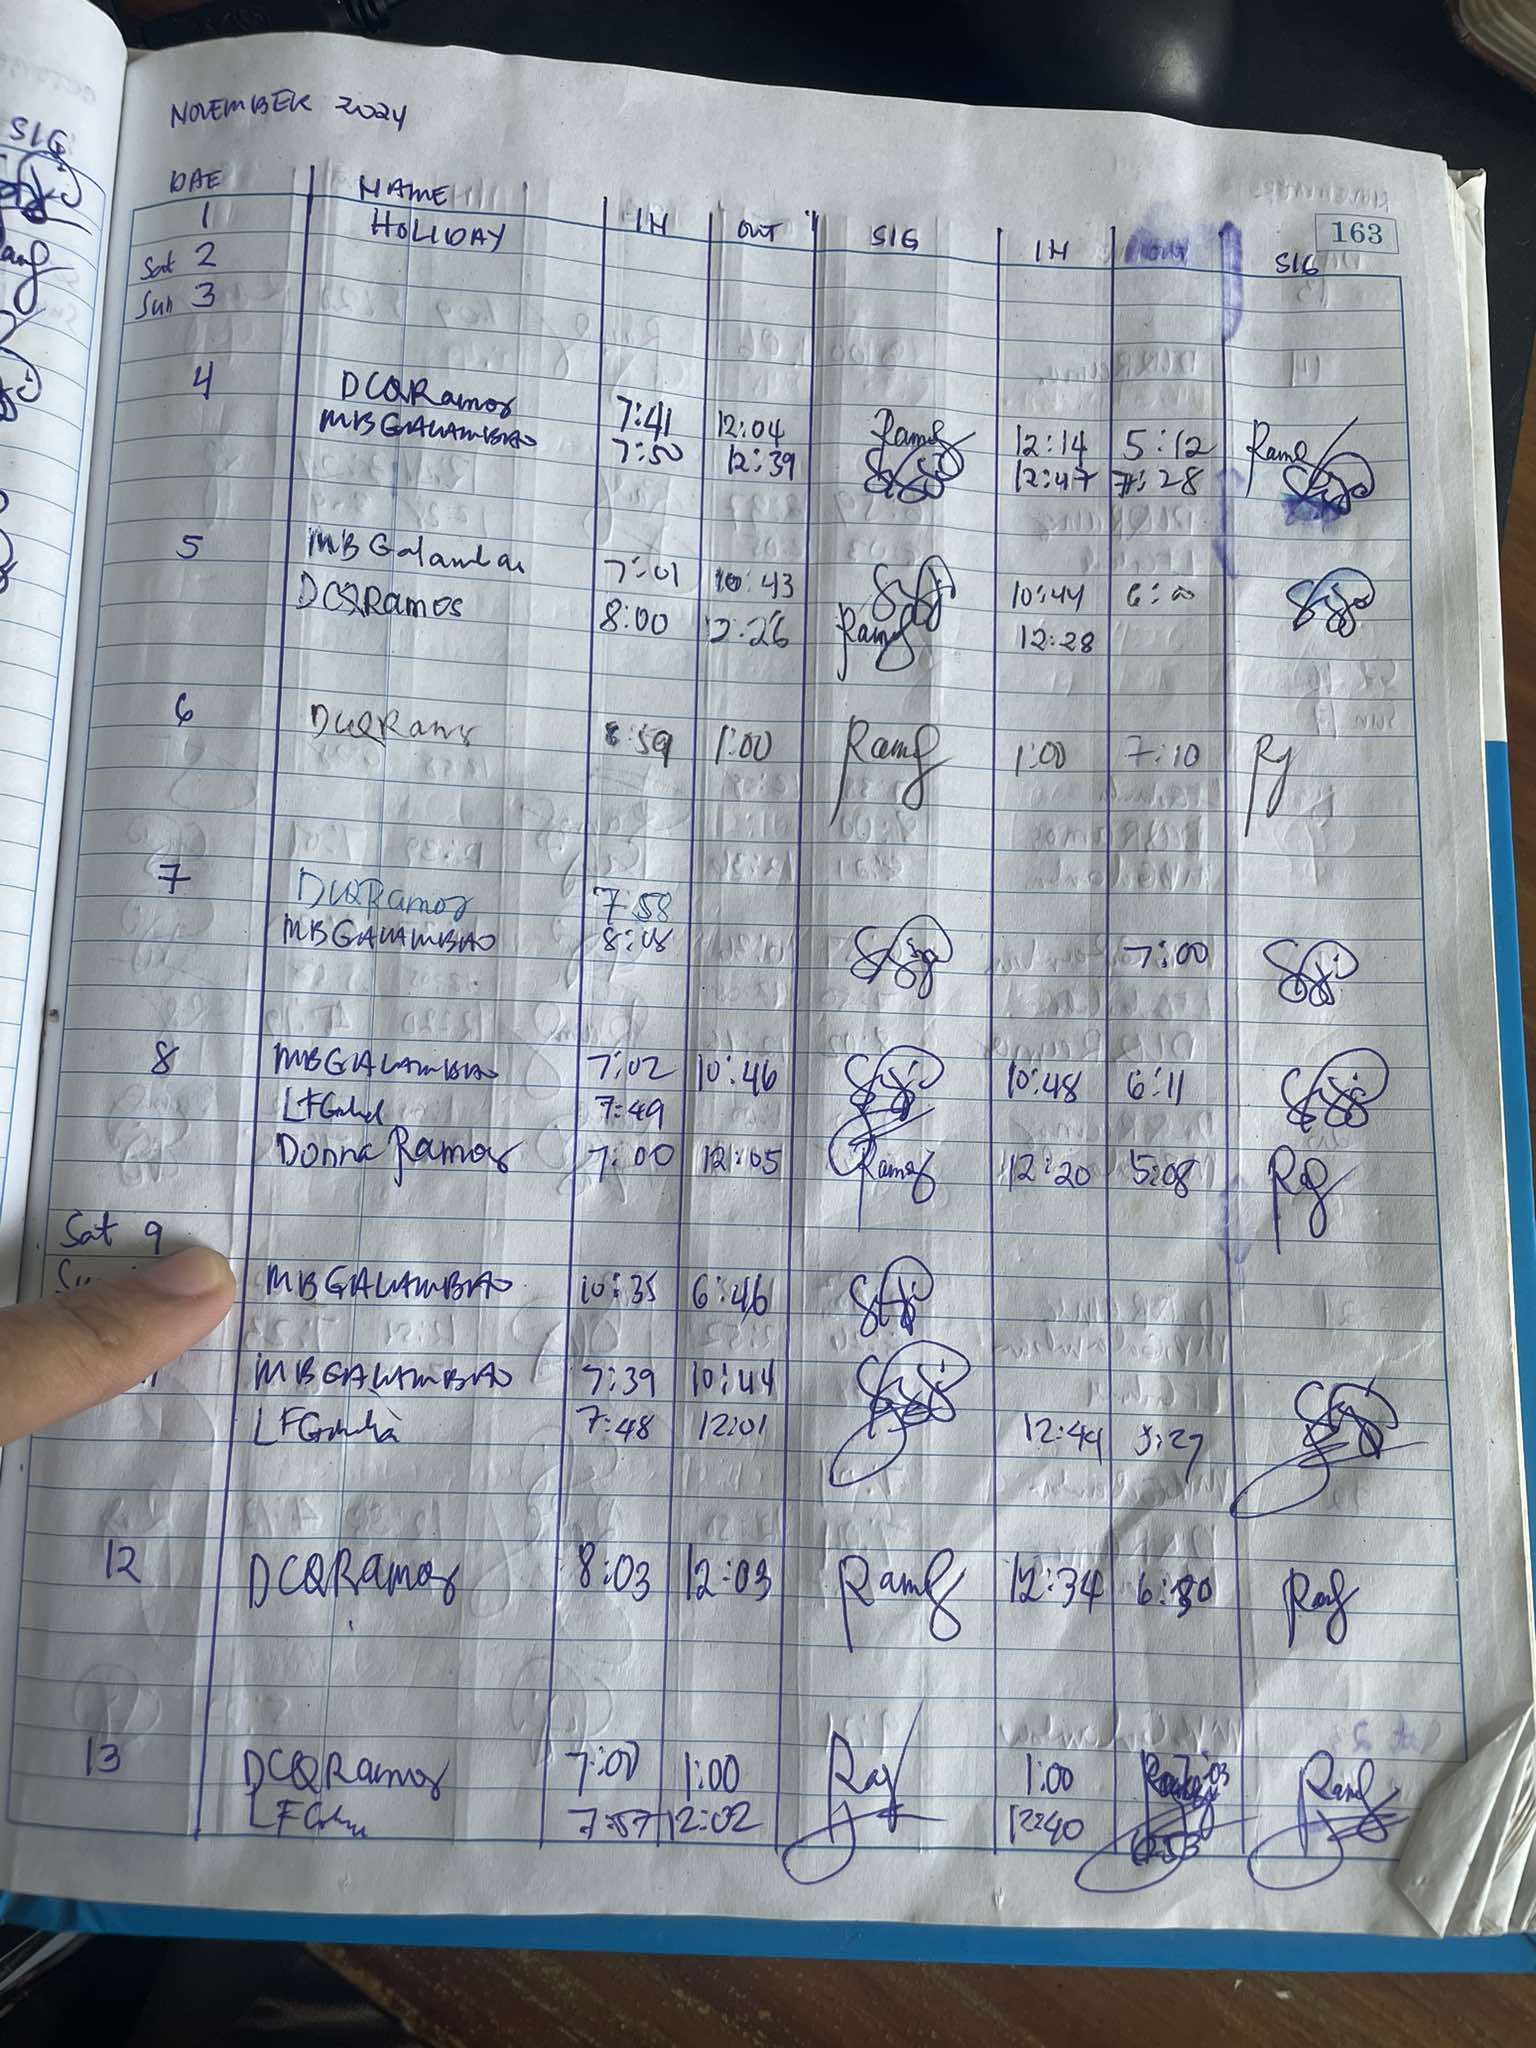 SIG
NOVEMBER 2024
DAE NAME IN OUT SIG IN OUT SIG 163
1 HOLIDAY
Sat 2
Sun 3
4 DCQRamos 7:41 12:04 Ramos 12:14 5:12 Ramos
MBGALAMBAO 7:50 12:39 12:47 7:28
5 MBGalambao 7:01 10:43 10:44 6:00
DCQRamos 8:00 12:26 Ramos 12:28
6 DCQRamos 8:59 1:00 Ramos 1:00 7:10
7 DCQRamos 7:58
MBGALAMBAO 8:08 7:00
8 MBGALAMBAO 7:02 10:46 10:48 6:11
7:49
Donna Ramos 7:00 12:05 Ramos 12:20 5:08
Sat 9
MBGALAMBAO 10:35 6:46
MBGALAMBAO 7:39 10:44
7:48 12:01 12:44 5:27
12 DCQRamos 8:03 12:03 Ramos 12:34 6:30
13 DCQRamos 7:00 1:00 1:00 Ramos
7:57 12:02 12:40